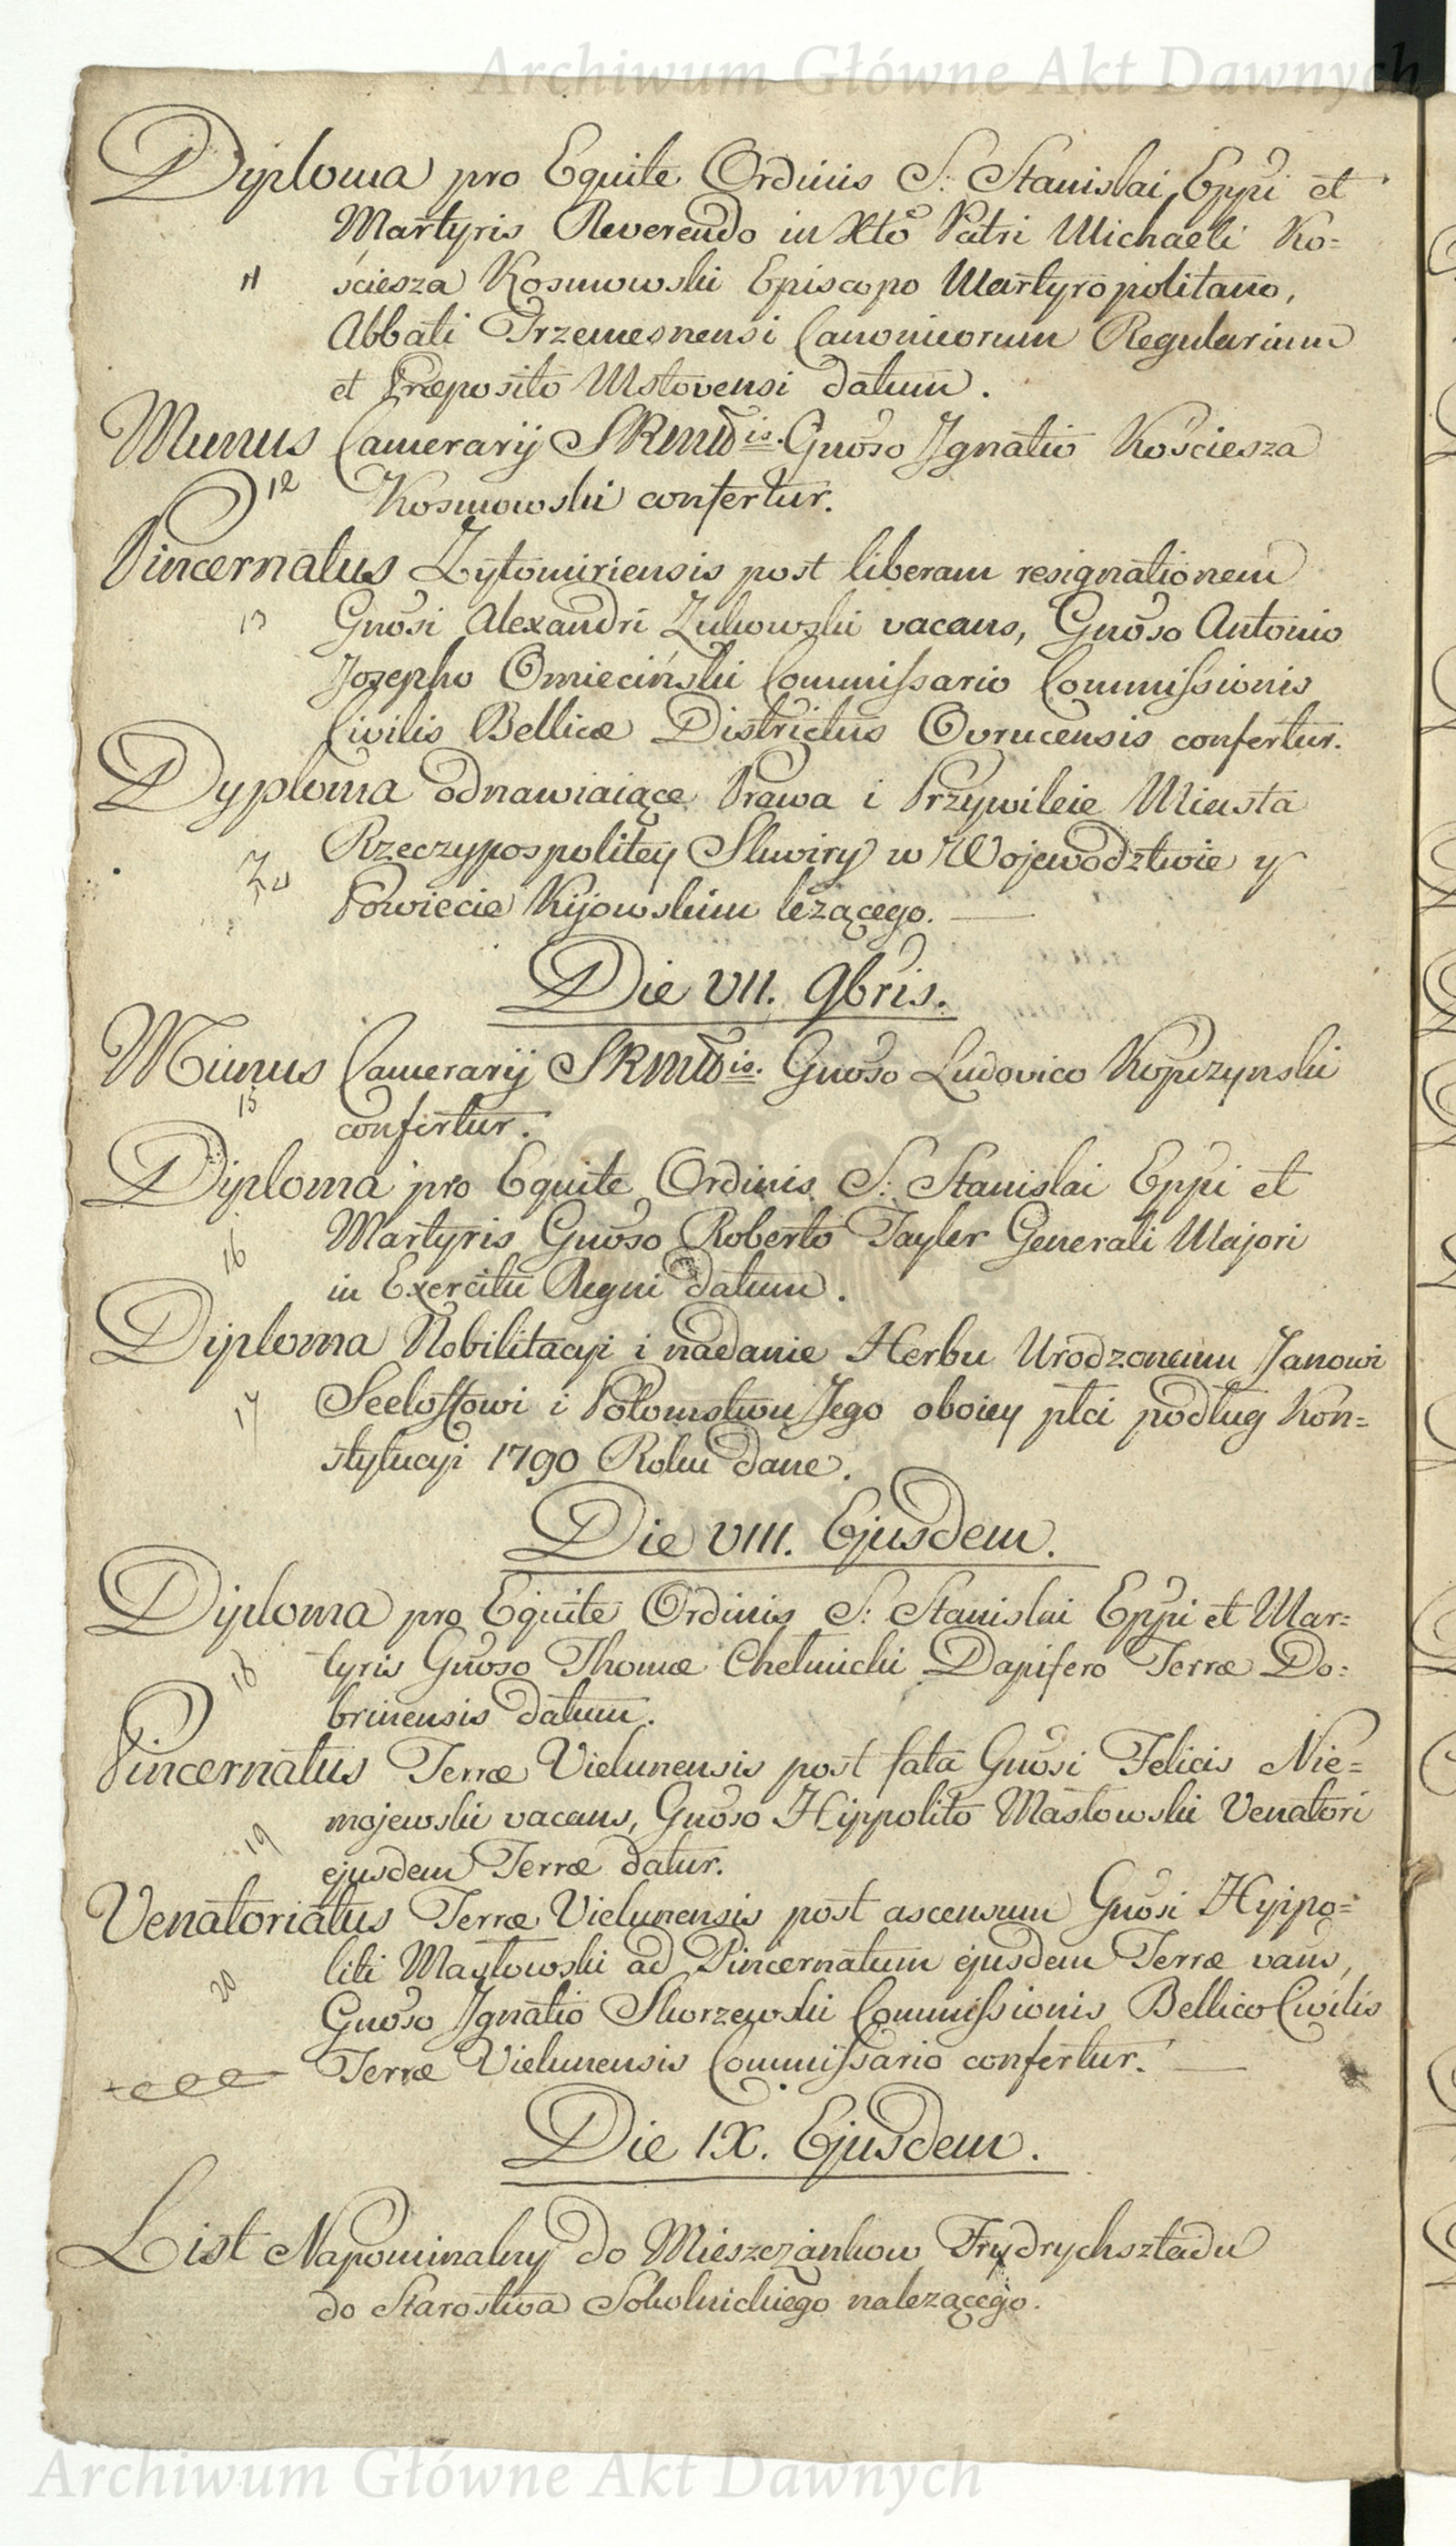 Archiwum Główne Akt Dawnych
Diploma pro Equite Ordinis S: Stanislai Eppi et
Martyris Reverendo in Xto Patri Michaeli Ko=
11 ściesza Kosmowski Episcopo Martyropolitano,
Abbati Trzemesnensi Canonicorum Regularium
et Præposito Mstovensi datum.
Munus Camerarij SRMttis. Gnoso Ignatio Kościesza
12 Kosmowski confertur.
Pincernatus Zytomiriensis post liberam resignationem
13 Gnosi Alexandri Zukowski vacans, Gnoso Antonio
Josepho Omieciński Commissario Commissionis
Civilis Bellicæ Districtus Ovrucensis confertur.
Dyploma odnawiaiące Prawa i Przywileie Miasta
Rzeczypospolitey Skwiry w Wojewodztwie y
Powiecie Kijowskim leżącego.
Die VII. 9bris.
Munus Camerarij SRMttis. Gnoso Ludovico Kopczynski
15 confertur.
Diploma pro Equite Ordinis S: Stanislai Eppi et
16 Martyris Gnoso Roberto Tayler Generali Majori
in Exercitu Regni datum.
Diploma Nobilitacyi i nadanie Herbu Urodzonemu Janowi
17 Seelostowi i Potomstwu Jego oboiey płci podług Kon=
stytucyi 1790 Roku dane.
Die VIII. Ejusdem.
Diploma pro Equite Ordinis S: Stanislai Eppi et Mar=
18 tyris Gnoso Thomæ Chełmicki Dapifero Terræ Do=
brinensis datum.
Pincernatus Terræ Vielunensis post fata Gnosi Felicis Nie=
19 mojewski vacans, Gnoso Hippolito Masłowski Venatori
ejusdem Terræ datur.
Venatoriatus Terræ Vielunensis post ascensum Gnosi Hyppo=
20 liti Masłowski ad Pincernatum ejusdem Terræ vans,
Gnoso Ignatio Skorzewski Commissionis Bellico Civilis
Terræ Vielunensis Commissario confertur.
Die IX. Ejusdem.
List Napominalny do Mieszczankow Frydrychsztadu
do Starostwa Sokolnickiego nalezącego.
Archiwum Główne Akt Dawnych